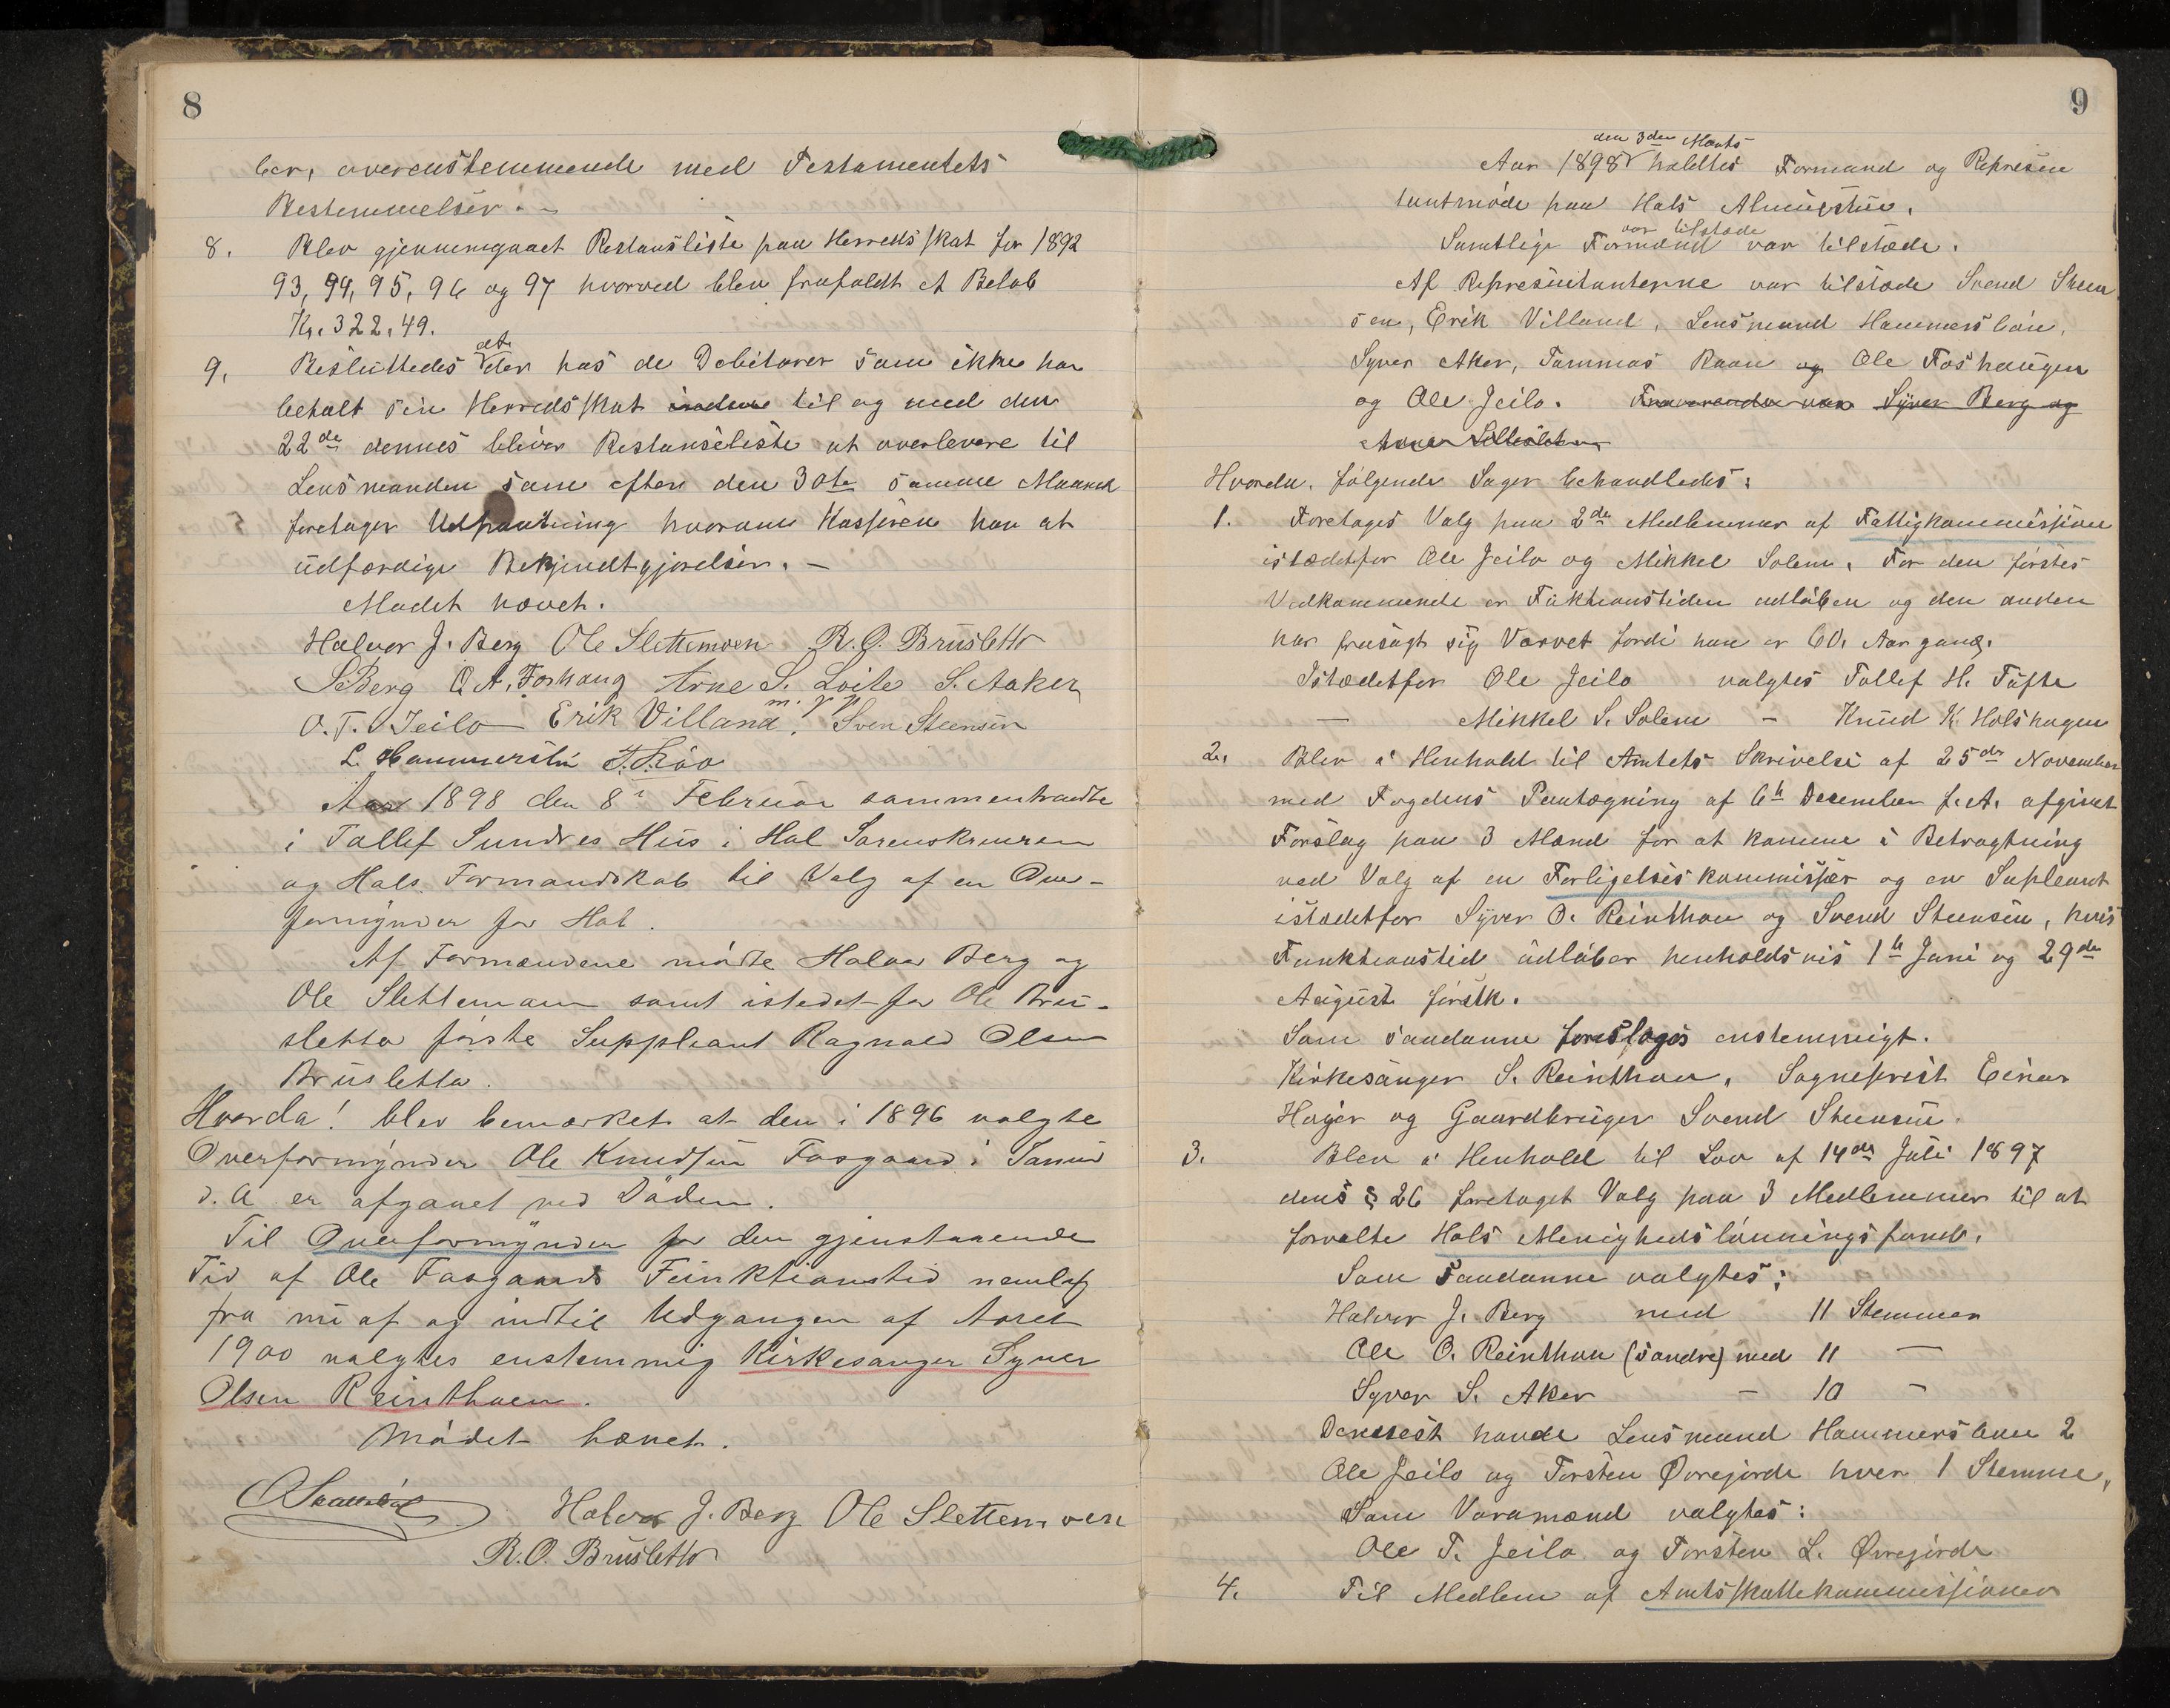 8
ber, overenstemmende med Testamentets
Bestemmelser. –
8. Blev gjennemgaaet Restansliste paa Herredsskat for 1892
93, 94, 95, 96 og 97 hvorved blev frafaldt et Beløb
Kr. 322,49.
9. Besluttedes at der hos de Debitorer som ikke har
betalt sin Herredsskat inden til og med den
22de dennes bliver Restanseliste at overlevere til
Lensmanden som efter den 30te samme Maaned
foretager Udpantning hvorom Kasseren har at
udfærdige Bekjendtgjørelser. –
Mødet hævet.
Halvor J. Berg Ole Slettemoen R. O. Brusletto
S Berg O A. Foshaug Arne S. Loite S. Aaker
m. p. p.
O. T. Jeilo Erik Villand. Sven Steensen
L. Hammersbøn T. Raa
Aar 1898 den 8de Februar sammentraadte
i Tollef Sundres Hus i Hol Sorenskriveren
og Hols Formandskab til Valg af en Over-
formynder for Hol.
Af Formændene mødte Halvor Berg og
Ole Slettemoen samt istedetfor Ole Bru-
sletto første Suppleant Ragnald Olsen
Brusletto.
Hvorda! blev bemærket at den i 1896 valgte
Overformynder Ole Knudsen Fosgaard i Januar
d. A er afgaaet ved Døden.
Til Overformynder for den gjenstaaende
Tid af Ole Fosgaards Funktionstid nemlig
fra nu af og indtil Udgangen af Aaret
1900 valgtes enstemmig Kirkesanger Syver
Olsen Reinthoen.
Mødet hævet.
Halvor J. Berg Ole Slettemoen
R. O. Brusletto
9
den 3den Marts
Aar 1898 holdtes Formand og Represen
tantmøde paa Hols Almuestue.
var tilstæde
Samtlige Formænd var tilstæde.
Af Representanterne var tilstæde Svend Steen
sen, Erik Villand, Lensmand Hammersbøn,
Syver Aker, Tommas Raaen og Ole Foshaugen
og Ole Jeilo. Fraværende var Syver Berg og
Hvorda, følgende Sager behandledes:
1. Foretages Valg paa 2de Medlemmer af Fattigkommissionen
istædetfor Ole Jeilo og Mikkel Solem. For den førstes
Vedkommende er Funktionstiden udløben og den anden
har frasagt sig Vervet fordi han er 60. Aar gamel.
Istædetfor Ole Jeilo valgtes Tollef H. Tufte
— Mikkel S. Solem – Knud K. Holshagen
2. Blev i Henhold til Amtets Skrivelse af 25de November
med Fogdens Paategning af 6te December f. A. afgivet
Forslag paa 3 Mænd for at komme i Betragtning
ved Valg af en Forligelseskommissær og en Supleant
istædetfor Syver O. Reinthon og Svend Steensen, hvis
Funktionstid udløber henholdsvis 1te Juni og 29de
August førstk.
Som saadanne foreslages enstemmigt.
Kirkesanger S. Reinthon, Sogneprest Einar
Høyer og Gaardbruger Svend Steensen.
3. Blev i Henhold til Lov af 14de Juli 1897
dens § 26 foretaget Valg paa 3 Medlemmer til at
forvalte Hols Menighedslønningsfond.
Som saadanne valgtes:
Halvor J. Berg med 11 Stemmer
Ole O. Reinthon (Søndre) med 11 —
Syver S. Aker – 10 –
Dernest havde Lensmand Hammersbøen 2
Ole Jeilo og Torsten Øvrejorde hver 1 Stemme.
Som Varamænd valgtes:
Ole T. Jeilo og Torsten L. Øvrejorde
4. Til Medlem af Amtsskattekommissionen